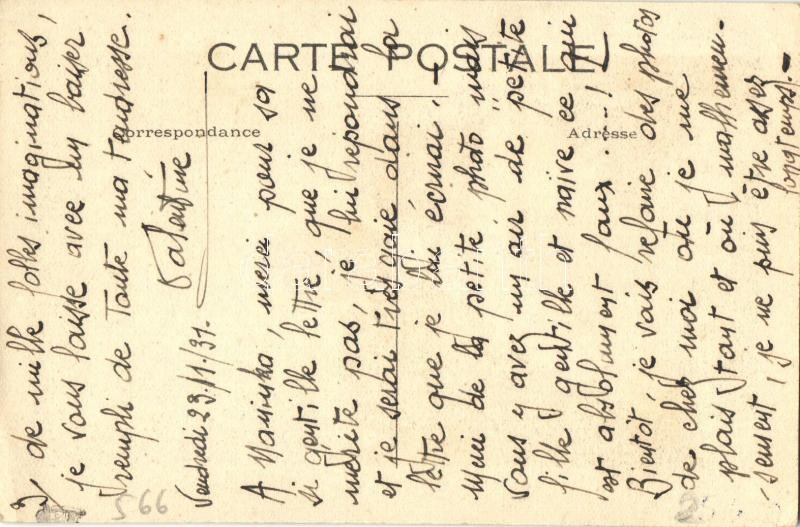 CARTE POSTALE
Correspondance
Adresse
de mille folles imaginations,
je vous laisse avec un baiser
rempli de toute ma tendresse.
Vendredi 23/11/31.
A merci pour sa
si gentille lettre, que je ne
mérite pas, je lui répondrai
et je serai très gaie dans la
lettre que je lui écrirai. -
Merci de la petite photo mais
vous y avez un air de "petite
fille" gentille et naïve ce qui
est absolument faux...!
Bientôt, je vais refaire des photos
de chez moi où je me
plais tant et où malheureu-
sement, je ne puis être assez
longtemps. -
566